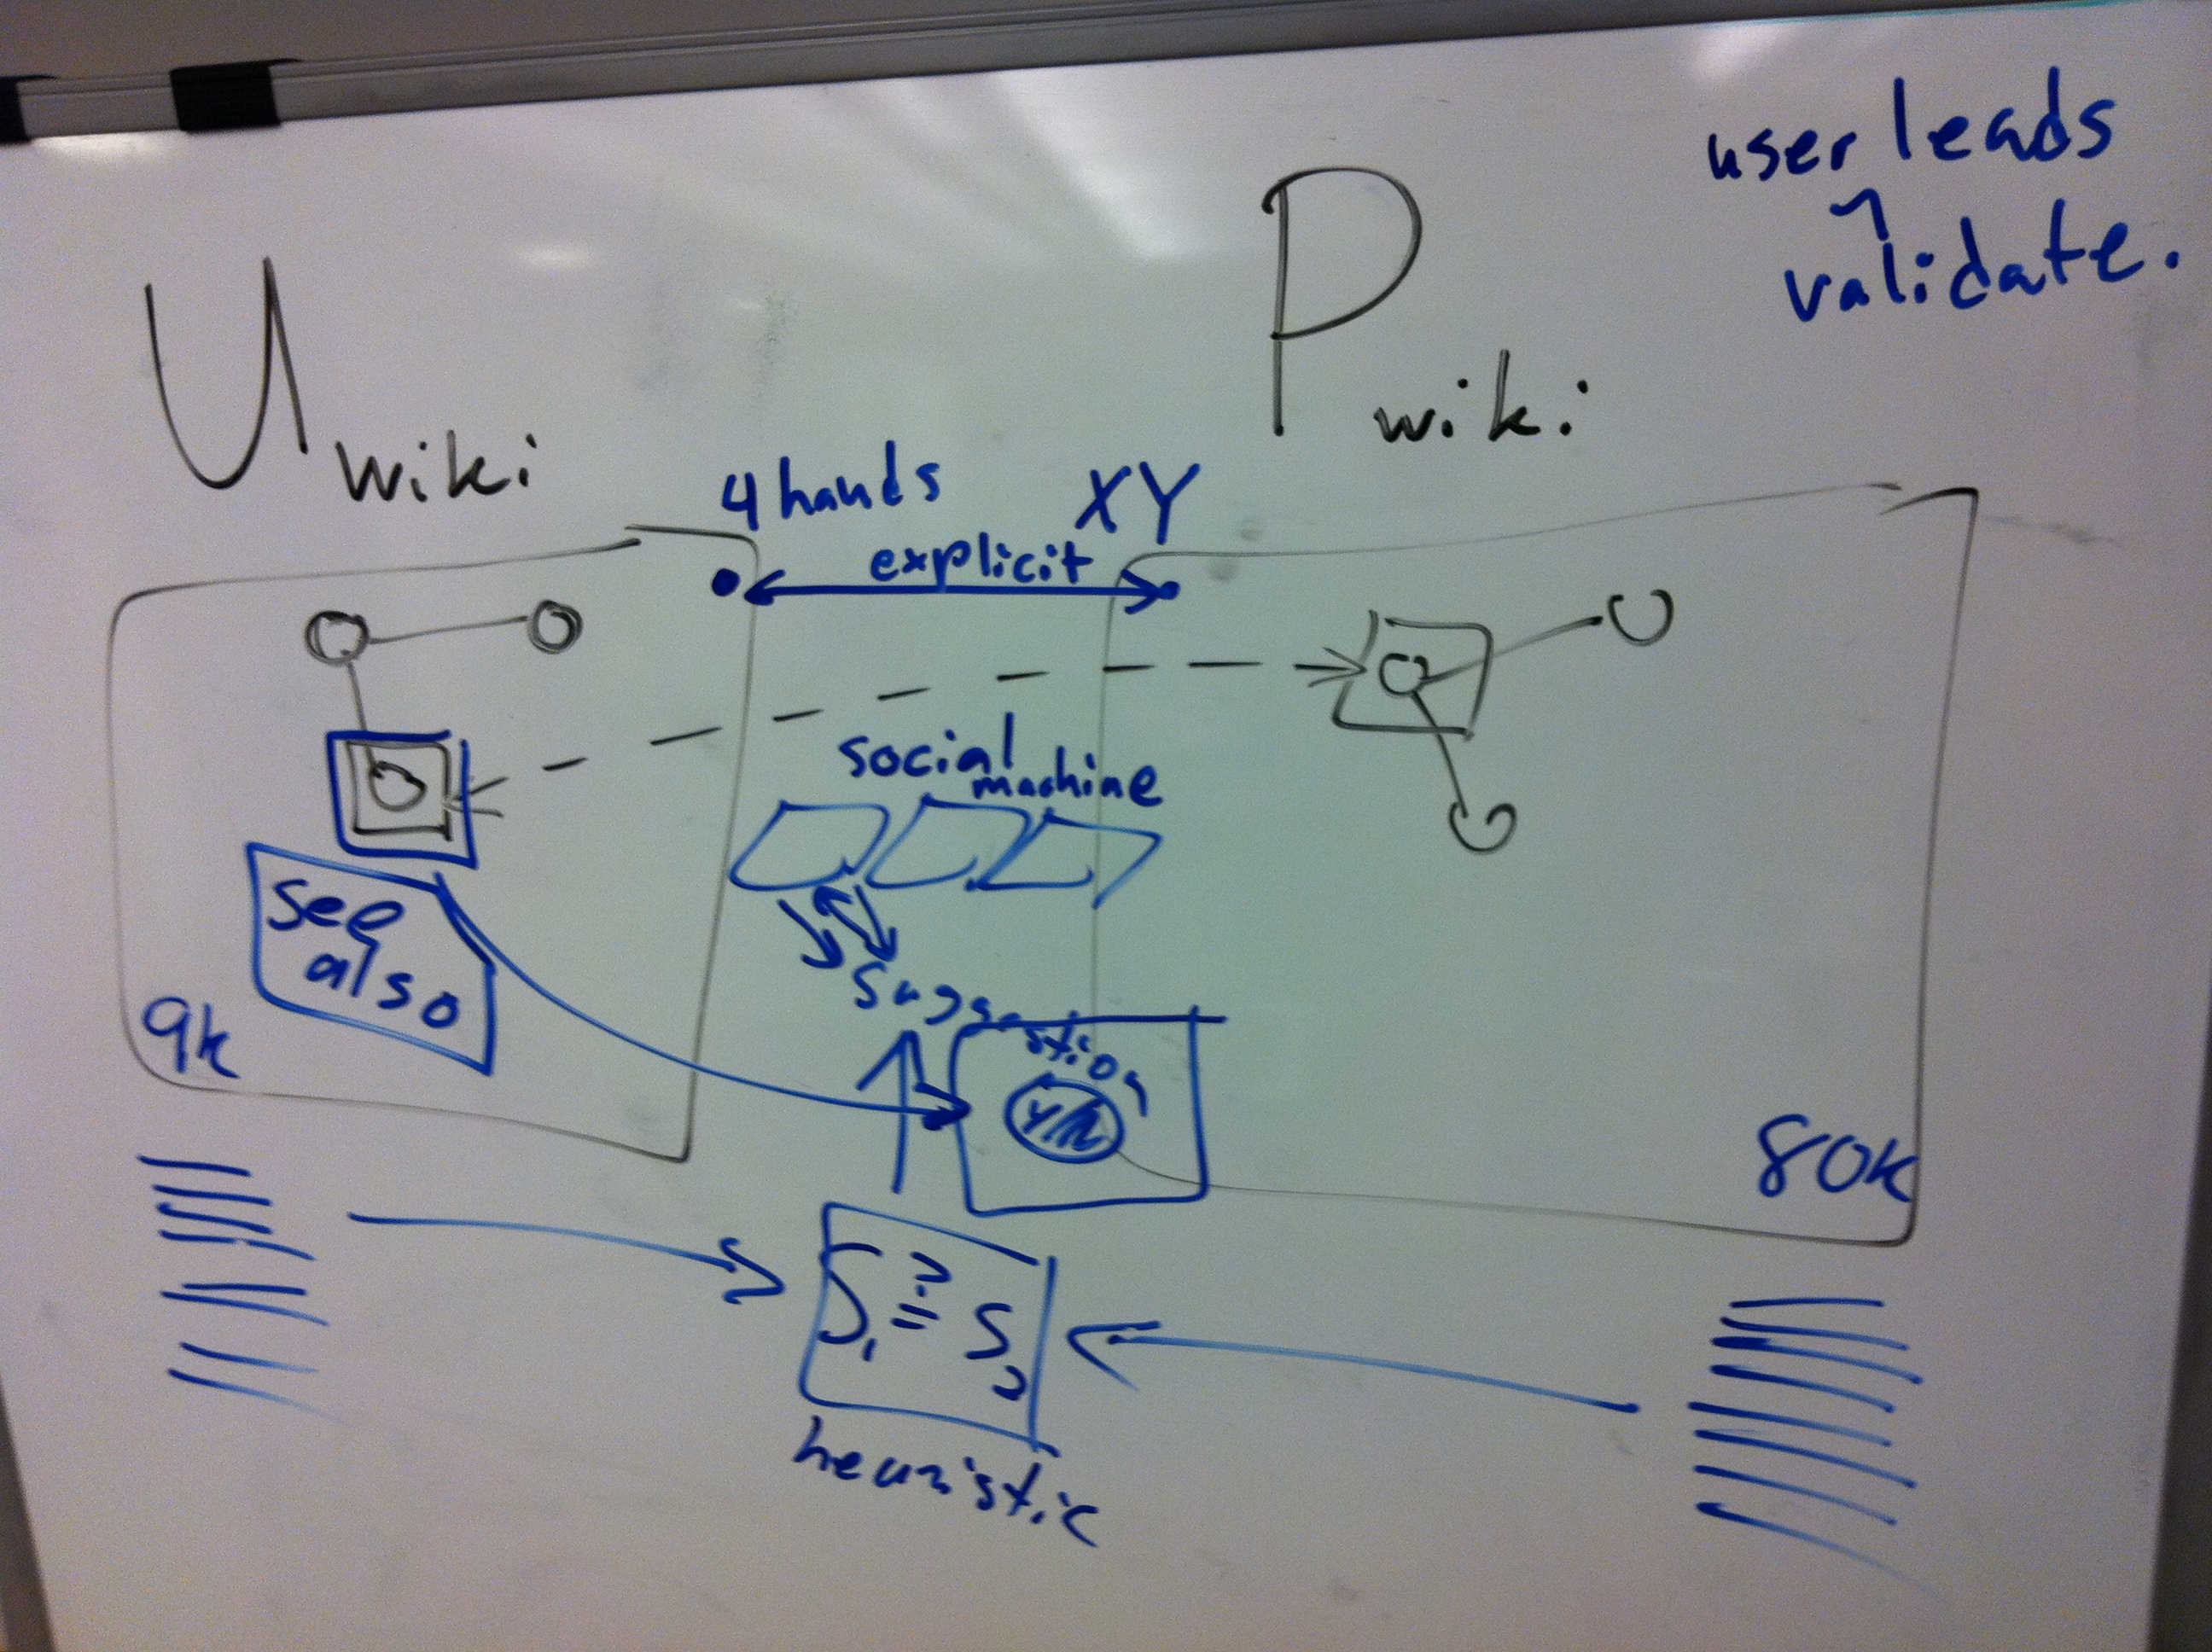 user leads
validate.
U wiki
P wiki
4 hands
XY
explicit
social
machine
see
also
suggestion
9k
80k
S1 ?= S2
heuristic